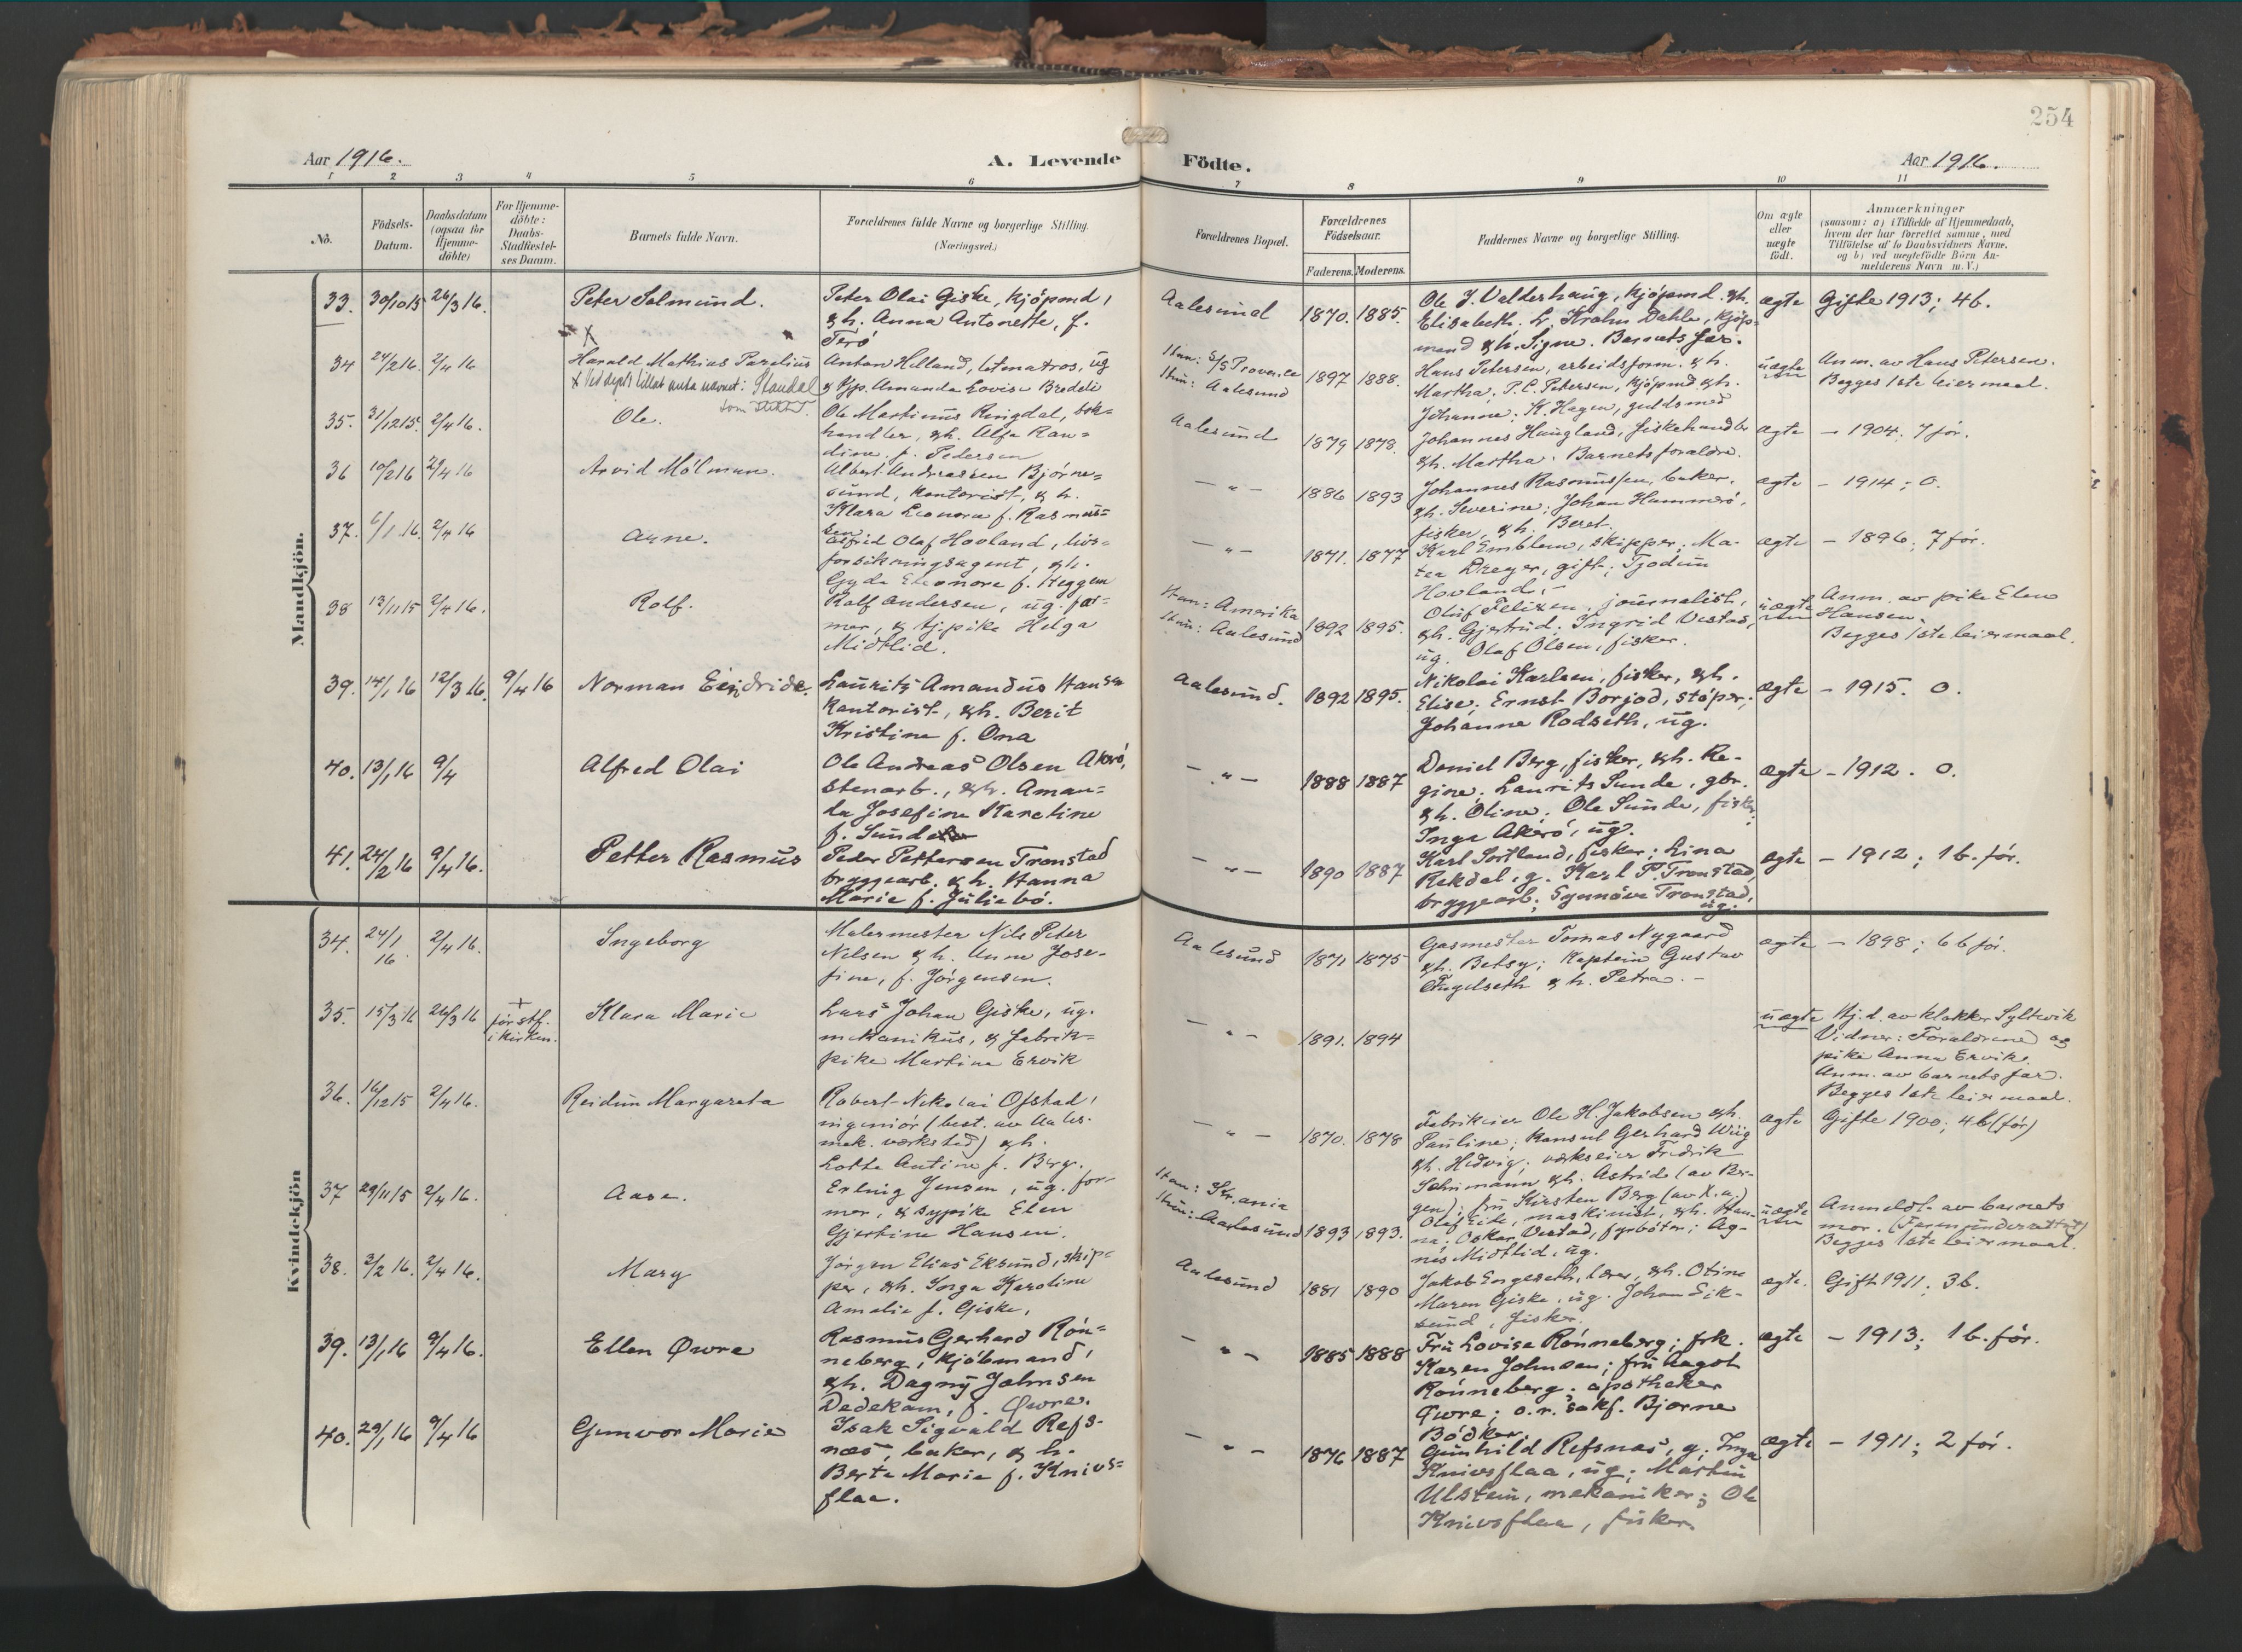 254
Aar 1916.
A. Levende
Födte.
Aar 1916.
1 2 3 4 5 6 7 8 9 10 11
No.
Födsels-
Datum.
Daabsdatum
(ogsaa for
Hjemme-
döbte)
For Hjemme-
döbte:
Daabs-
Stadfæstel-
ses Datum.
Barnets fulde Navn.
Forældrenes fulde Navne og borgerlige Stilling.
(Næringsvei.)
Forældrenes Bopæl.
Forældrenes
Födselsaar.
Faderens. Moderens.
Faddernes Navne og borgerlige Stilling.
Om ægte
eller
uægte
födt.
Anmærkninger
(saasom: a) i Tilfælde af Hjemmedaab,
hvem der har forrettet samme, med
Tilföielse af to Daabsvidners Navne.
og b) ved uægtefödte Börn An-
melderens Navn m. V.)
Mandkjön.
33. 30/10 15 26/3 16. Peter Salmund.
Peter Olai Giske, kjöpmd,
& h. Anna Antonette, f.
Terö
Aalesund 1870. 1885.
Ole J. Valderhaug, kjöpmd. & h.
Elisabeth. Kr. Krohn Dahle, kjöp-
mand & h. Signe. Barnets far.
ægte Gifte 1913; 4 b.
34 24/2 16. 2/4 16
Harald Mathias Parelius
x Ved dept. tillat anta navnet: Standal
som slektsn.
Anton Helland, letmatros, ug
& kjp. Amanda Lovise Bredeli
Han: S/S Provence
Hun: Aalesund
1897 1888.
Hans Petersen, arbeidsform. & h.
Martha; P. C. Petersen, kjöpmd & h.
Johanne; K. Hagen, guldsmed
uægte
Anm. av Hans Petersen.
Begges 1ste leiermaal.
35. 31/12 15. 2/4 16. Ole.
Ole Martinus Ringdal, bok-
handler, & h. Alfa Ran-
dine f. Pedersen
Aalesund 1879 1878.
Johannes Haugland, fiskehandler
& h. Martha. Barnets foraldre.
ægte - 1904; 7 för.
36 10/2 16 2/4 16 Arvid Mölman.
Albert Andreassen Björne-
sund, kontorist, & h.
Klara Leonora f. Rasmus-
sen
- " - 1886 1893
Johannes Rasmussen, baker,
& h. Severine; Johan Hammerö,
fisker, & h. Beret.
ægte - 1914; 0.
37. 6/1 16. 2/4 16 Arne.
Olaf Hovland, livs-
forsikringsagent, & h.
Gyda Eleonore f. Heggem
- " - 1871. 1877
Karl Emblem, skipper; Ma-
tea Dreyer, gift; Tjodun
Hovland,-
ægte - 1896; 7 för.
38 13/11 15 2/4 16. Rolf.
Rolf Andersen, ug. for-
mer, & tj.pike Helga
Midtlid.
Han: Amerika
Hun: Aalesund
1892 1895.
Oluf Felixen, journalist,
& h. Gjertrud. Ingrid Vestad,
ug. Olaf Olsen, fisker.
uægte
Anm. av pike Elen
Hansen.
Begges 1ste leiermaal.
39. 14/1 16 12/3 16. 9/4 16 Norman Eindride.
Lauritz Amandus Hansen
kontorist, & h. Berit
Kristine f. Ona
Aalesund. 1892 1895.
Nikolai Karlsen, fisker, & h.
Elise; Ernst Borjod, stöper;
Johanna Rodseth, ug.
ægte - 1915. 0.
40. 13/1 16 9/4 Alfred Olai
Ole Andreas Olsen Akerö,
stenarb., & h. Aman-
da Josefine Karetine
f. Sunde
- " - 1888 1887
Daniel Berg, fisker, & h. Re-
gine; Laurits Sunde, gbr.
& h. Oline; Ole Sunde, fisker;
Inga Akerö, ug.
ægte - 1912. 0.
41. 24/2 16 9/4 16. Petter Rasmus
Peder Pettersen Tronstad
bryggearb. & h. Hanna
Marie f. Juliebö.
- " - 1890 1887
Karl Sortland, fisker; Lina
Rekdal, g. Karl P. Tronstad,
bryggearb.; Synnöve Tronstad,
ug.
ægte - 1912; 1 b. för.
Kvindekjön
34. 24/1 16 2/4 16. Ingeborg
Malermester Nils Peter
Nilsen & h. Anne Jose-
fine, f. Jörgensen.
Aalesund 1871 1875
Gasmester Tomas Nygaard
& h. Betsy; Kaptein Gustav
Engelseth & h. Petra. -
ægte - 1898; 6 b för.
35. 15/3 16 26/3 16 + för stf. i kirken. Klara Marie
Lars Johan Giske, ug.
mekanikus, & fabrik-
pike Martine Ervik
- " - 1891. 1894
uægte
Hj.d. av klokker Syltevik
Vidner: Foraldrene og
pike Anna Ervik.
Anm. av barnets far.
Begges 1ste leiermaal.
36. 16/12 15 2/4 16. Reidun Margareta
Robert Nikolai Ofstad,
ingeniör (best. av Aales.
mek. værksted) & h.
Lotte Antine f. Berg.
- " - 1870. 1878
Fabrikeier Ole H. Jakobsen & h.
Pauline; konsul Gerhard Wiig
& h. Hedvig; værkseier Fredrik
Sahrimann & h. Astrid (av Ber-
gen); fru Kirsten Berg (av K.a.)
ægte Gifte 1900; 4 b (för)
37 29/11 15 2/4 16. Aase.
Erling Jensen, ug. for-
mer, & sypike Elen
Gjertine Hansen.
Han: Kr.ania
Hun: Aalesund
1893 1893.
Olaf Eik, maskinist, & h. Han-
na; Oskar Vestad, fyrböter; Ag-
nes Midtlid, ug.
uægte
Anmeldt av barnets
mor. (Faren underrettet)
Begges 1ste leiermaal.
38. 3/2 16. 2/4 16. Mary
Jörgen Elias Eksund, skip-
per, & h. Inga Karoline
Amalie f. Giske.
Aalesund 1881 1890
Jakob Engeseth, lærer, & h. Otine
Maren Giske, ug. Johan Eik-
sund, fisker.
ægte. Gift 1911; 3 b.
39. 13/1 16 9/4 16. Ellen Qvre
Rasmus Gerhard Rön-
neberg, kjöbmand,
& h. Dagny Johnsen
Dedekam, f. Qvre.
- " - 1885 1888
Fru Lovise Rönneberg; frk.
Karen Johnsen; fru Aagot
Rönneberg; apotheker
Qvre; o.r.sakf. Bjarne
Bödker.
ægte - 1913; 1 b. för.
40. 29/1 16 9/4 16 Gunvor Marie
Isak Sigvald Refs-
nes, baker, & h.
Berte Marie f. Knivs-
flaa.
- " - 1876 1887
Gunhild Refsnes, g. Inga
Knivsflaa, ug; Martin
Ulstein, mekaniker; Ole
Knivsflaa, fisker.
ægte - 1911; 2 för.